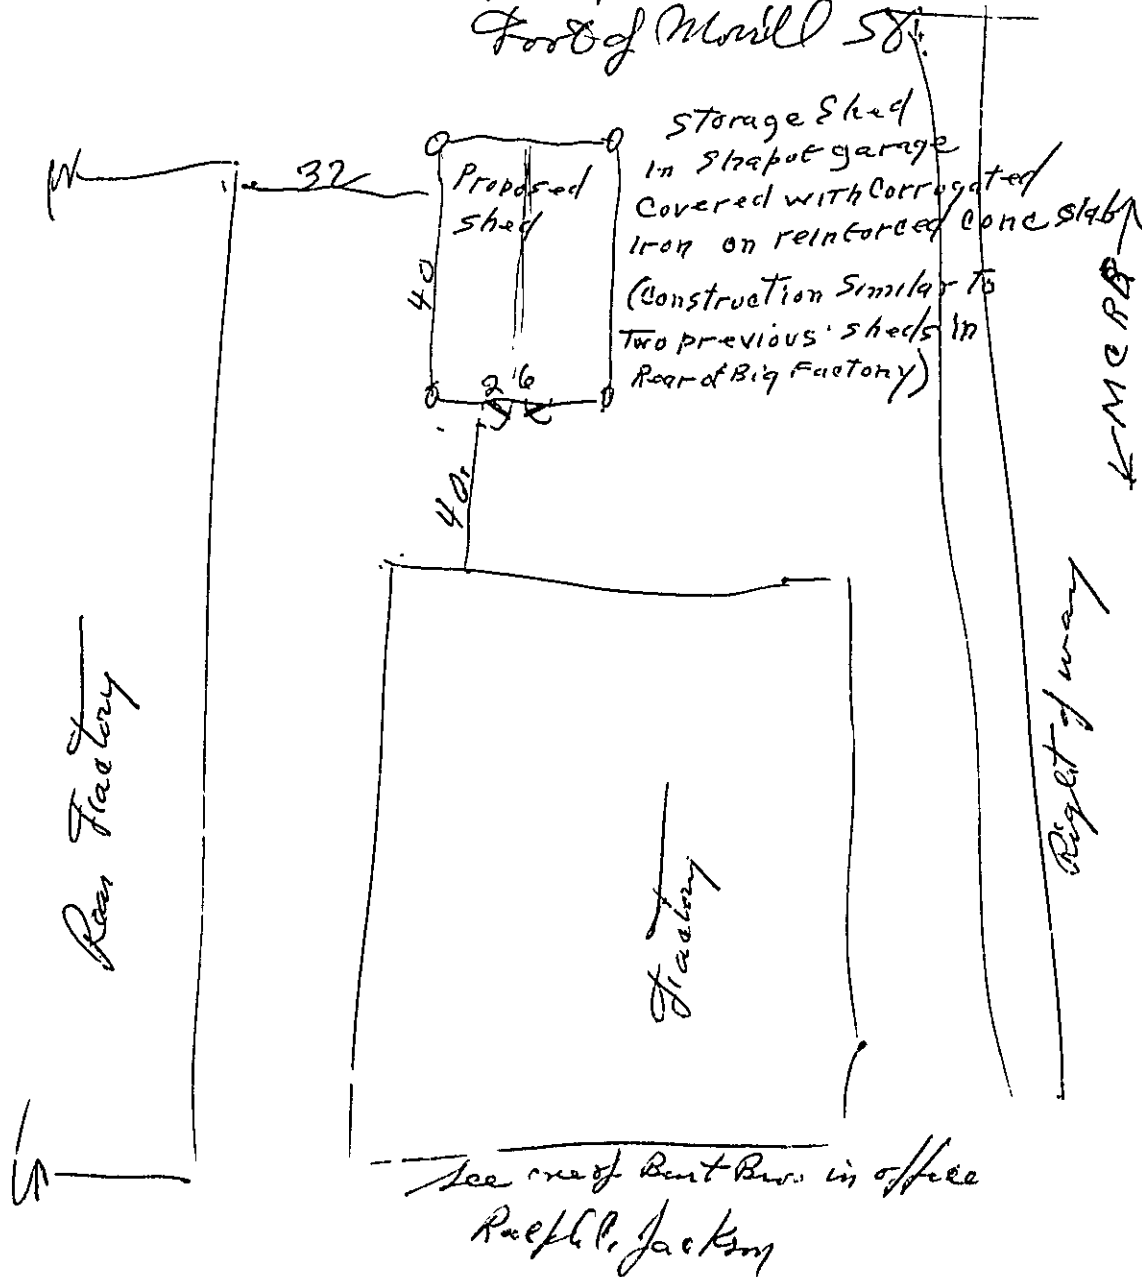 Foot of Morrill St.
Storage Shed
in Shap of garage
Covered with Corrugated
Iron on reinforced conc slab
(Construction Similar to
Two previous sheds in
Rear of Big Factory)
Proposed
shed
32
40
26
40'
MCRR
Right of way
Rear Factory
Factory
See one of Burt Bros. in office
Ralph C. Jackson